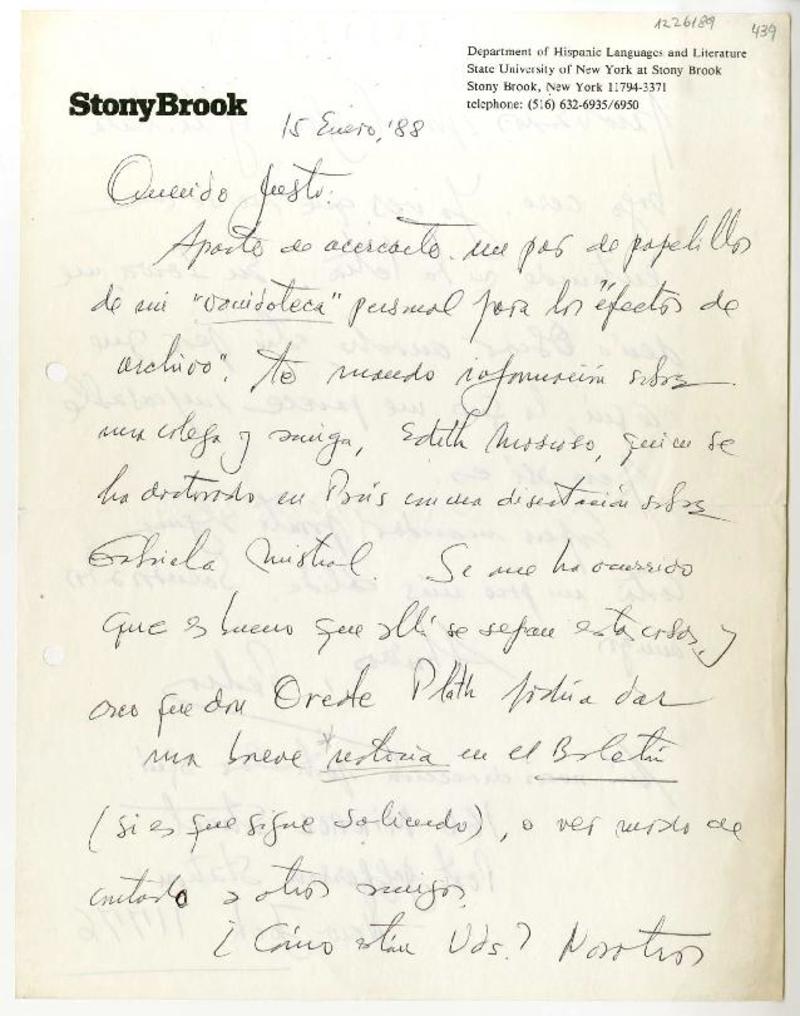 1226189
439
Department of Hispanic Languages and Literature
State University of New York at Stony Brook
Stony Brook, New York 11794-3371
telephone: (516) 632-6935/6950
StonyBrook
15 Enero, '88
Querido Justo:
Aparte de acercarte un par de papelillos
de mi "vanidoteca" personal para los "efectos de
archivo". Te mando información sobre
una colega y amiga, Edith Moscoso, quien se
ha doctorado en París con una disertación sobre
Gabriela Mistral. Se me ha ocurrido
que es bueno que allí se sepan estas cosas, y
creo que don Oreste Plath podría dar
una breve * noticia en el Boletín
(si es que sigue saliendo), o ver modo de
contarlo a otros amigos.
¿Cómo están Uds.? Nosotros